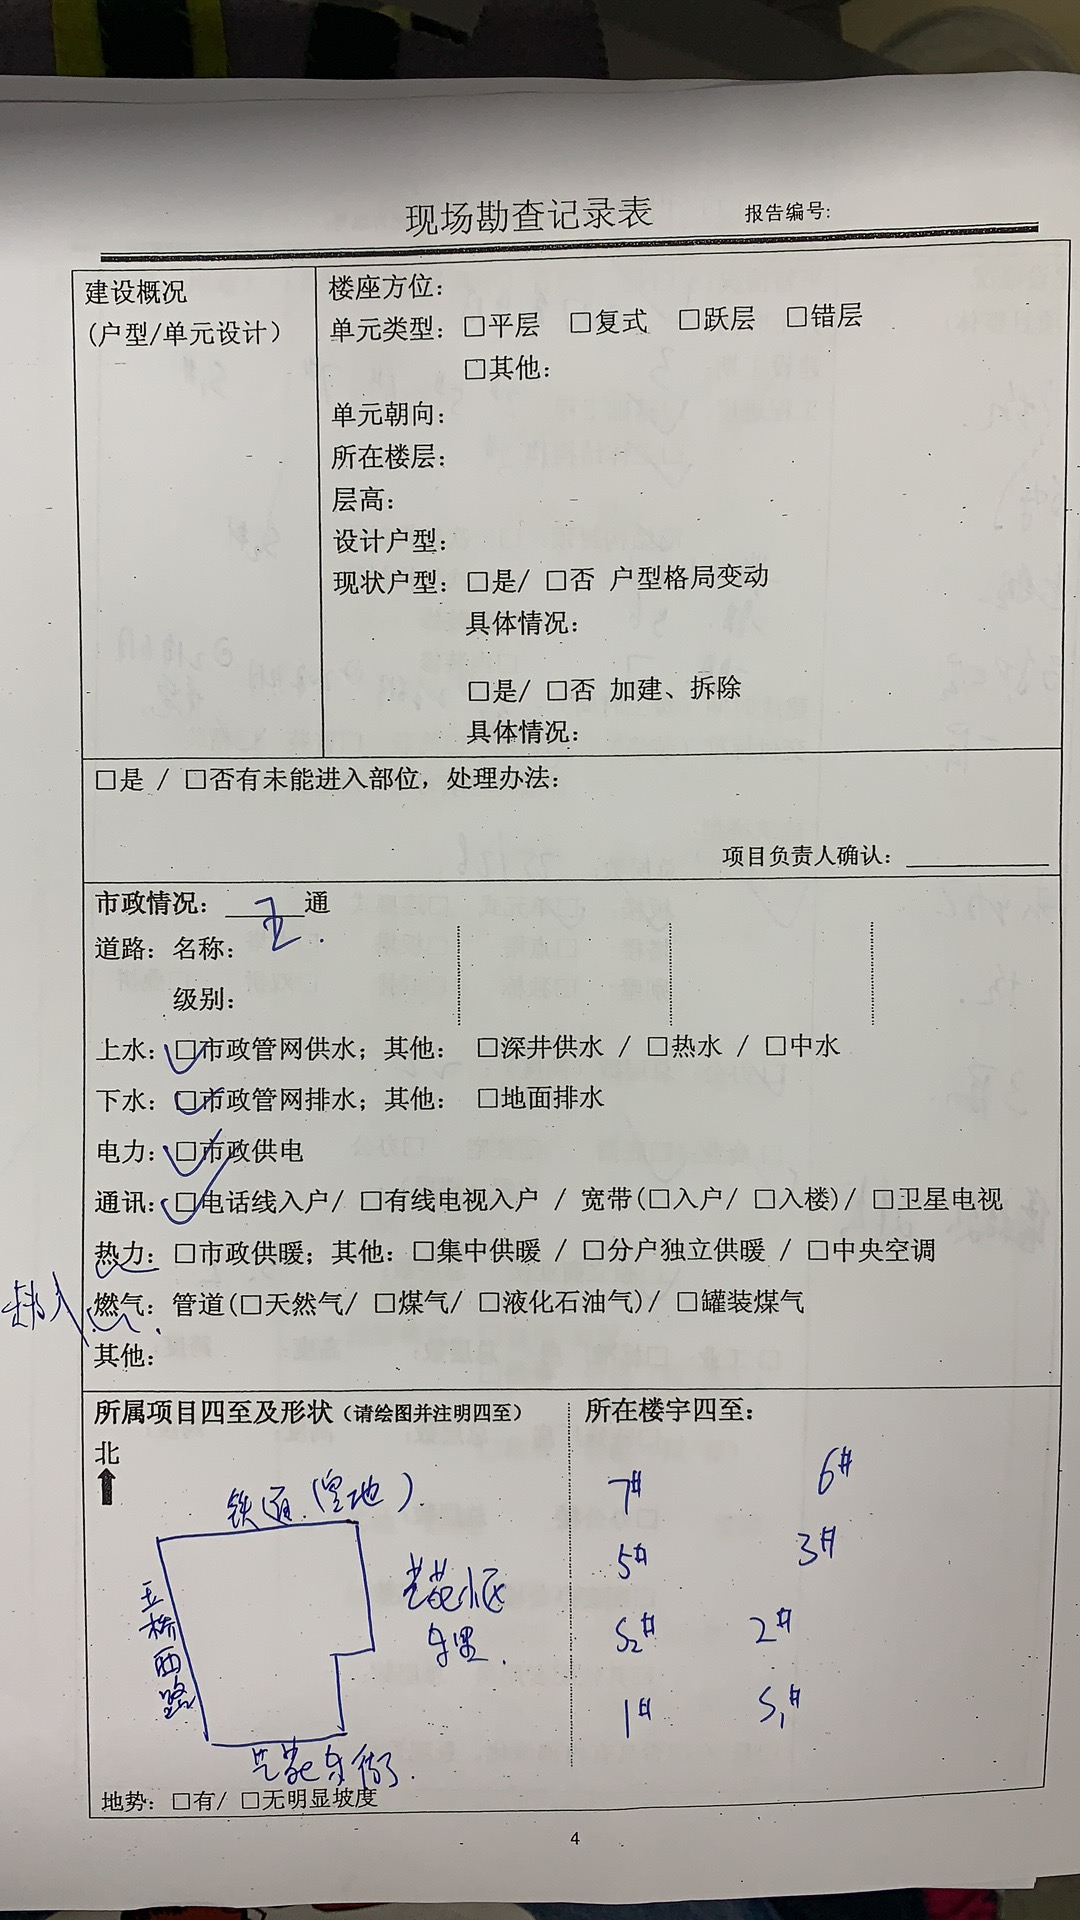 现场勘查记录表 报告编号:
建设概况
(户型/单元设计)
楼座方位:
单元类型: □平层 □复式 □跃层 □错层
□其他:
单元朝向:
所在楼层:
层高:
设计户型:
现状户型: □是/ □否 户型格局变动
具体情况:
□是/ □否 加建、拆除
具体情况:
□是 / □否有未能进入部位，处理办法:
项目负责人确认:
市政情况: 五 通
道路: 名称:
级别:
上水: □市政管网供水; 其他: □深井供水 / □热水 / □中水
下水: □市政管网排水; 其他: □地面排水
电力: □市政供电
通讯: □电话线入户/ □有线电视入户 / 宽带(□入户/ □入楼)/ □卫星电视
热力: □市政供暖; 其他: □集中供暖 / □分户独立供暖 / □中央空调
燃气: 管道(□天然气/ □煤气/ □液化石油气)/ □罐装煤气
其他:
所属项目四至及形状 (请绘图并注明四至)
北
铁道 (空地)
玉桥西路
小区
东里.
东街.
地势: □有/ □无明显坡度
所在楼宇四至:
7# 6#
5# 3#
S2# 2#
1# S1#
4